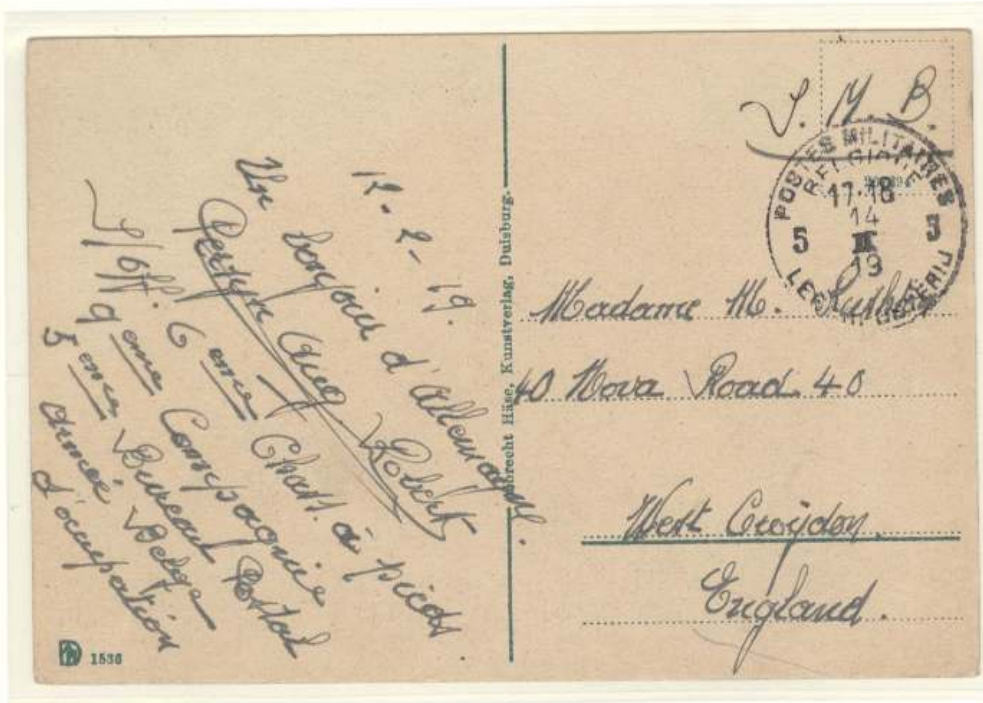 12-2-19.
Un bonjour d'Allemagne.
Aug. Robert
S/Off. 6 eme Chass. à pieds
9 eme Compagnie
5 eme Bureau Postal
armée Belge
d'occupation
1536
brecht Häse, Kunstverlag, Duisburg.
S. M. B.
POSTES MILITAIRES
BELGIQUE
17-18
14
II
19
5 5
LEGERPOSTERIJ
Madame M.
40 Nova Road 40
West Croydon
England.